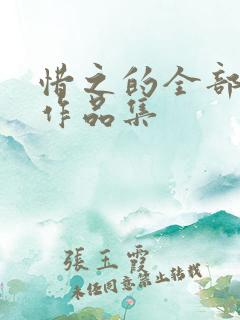 惜之的全部
作品集
張玉霞
未经同意禁止转载